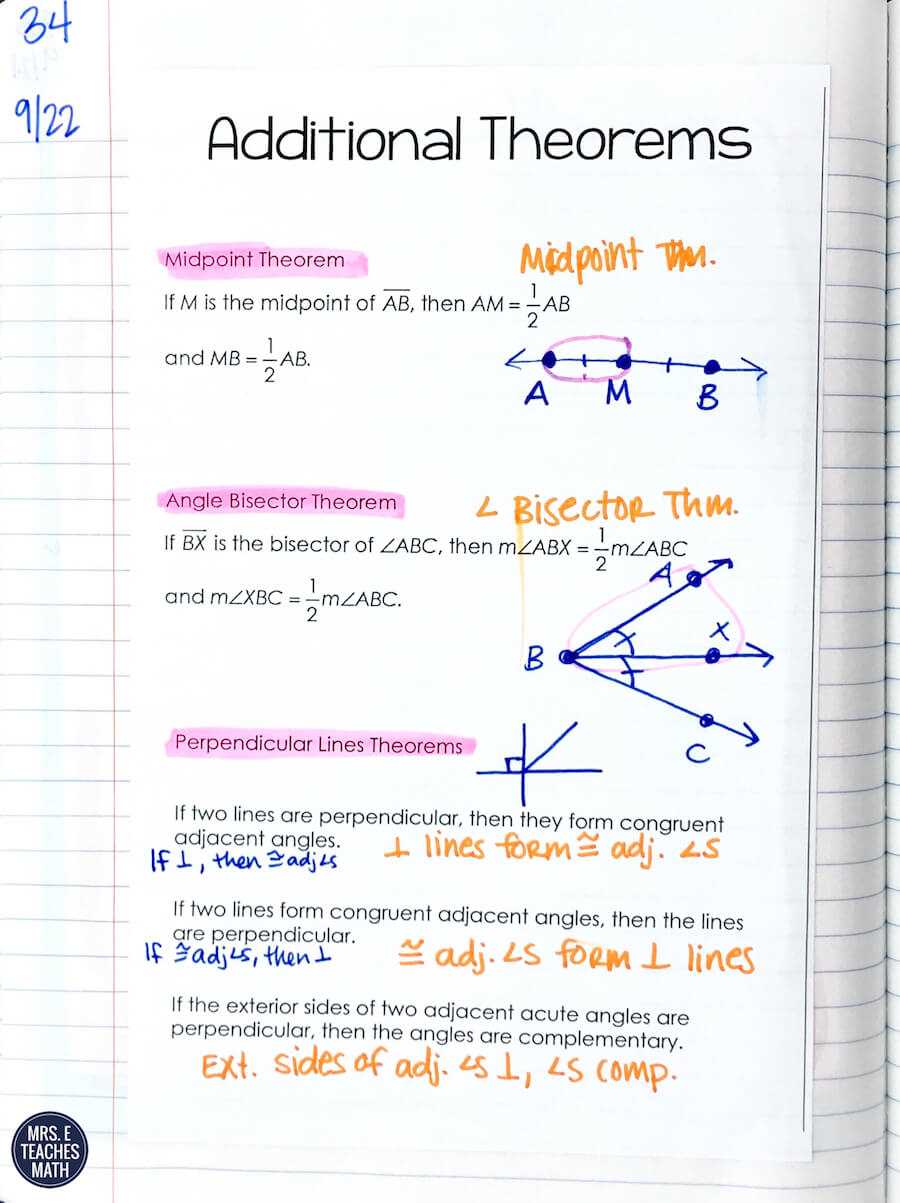 34
9/22
Additional Theorems
Midpoint Theorem
Midpoint Thm.
If M is the midpoint of A̅B̅, then AM = 1/2 AB
and MB = 1/2 AB.
A M B
Angle Bisector Theorem
∠ Bisector Thm.
If B̅X̅ is the bisector of ∠ABC, then m∠ABX = 1/2 m∠ABC
and m∠XBC = 1/2 m∠ABC.
A
X
B
C
Perpendicular Lines Theorems
If two lines are perpendicular, then they form congruent
adjacent angles.
If ⊥, then ≅ adj ∠s
⊥ lines form ≅ adj. ∠s
If two lines form congruent adjacent angles, then the lines
are perpendicular.
If ≅ adj ∠s, then ⊥
≅ adj. ∠s form ⊥ lines
If the exterior sides of two adjacent acute angles are
perpendicular, then the angles are complementary.
Ext. sides of adj. ∠s ⊥, ∠s comp.
MRS. E
TEACHES
MATH